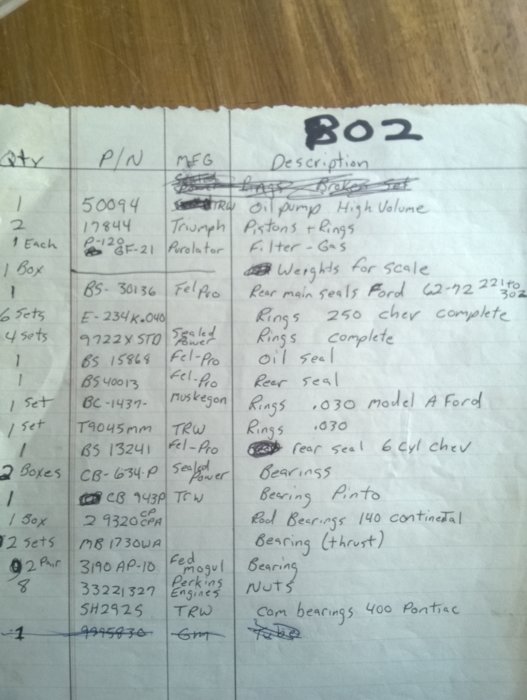 802
Qty P/N MFG Description
Rings Broken Set
1 50094 TRW Oil pump High Volume
2 17844 Triumph Pistons + Rings
1 Each P-120 GF-21 Purolator Filter - Gas
1 Box Weights for scale
1 BS-30136 FelPro Rear main seals Ford 62-72 221 to 302
6 Sets E-234K.040 Rings 250 chev complete
4 sets 9722X STD Sealed Power Rings complete
1 BS 15868 Fel-Pro Oil seal
1 BS40013 Fel-Pro Rear seal
1 Set BC-1437- Muskegon Rings .030 model A Ford
1 set T9045mm TRW Rings .030
1 BS 13241 Fel-Pro rear seal 6 cyl chev
2 Boxes CB-634-P Sealed Power Bearings
1 CB 943P TRW Bearing Pinto
1 Box 29320 CP CPA Rod Bearings 140 continetal
2 Sets MB 1730WA Bearing (thrust)
2 Pair 3190 AP-10 Fed mogul Bearing
8 33221327 Perkins Engines Nuts
SH292S TRW Cam bearings 400 Pontiac
1 9995830 Gm Tube